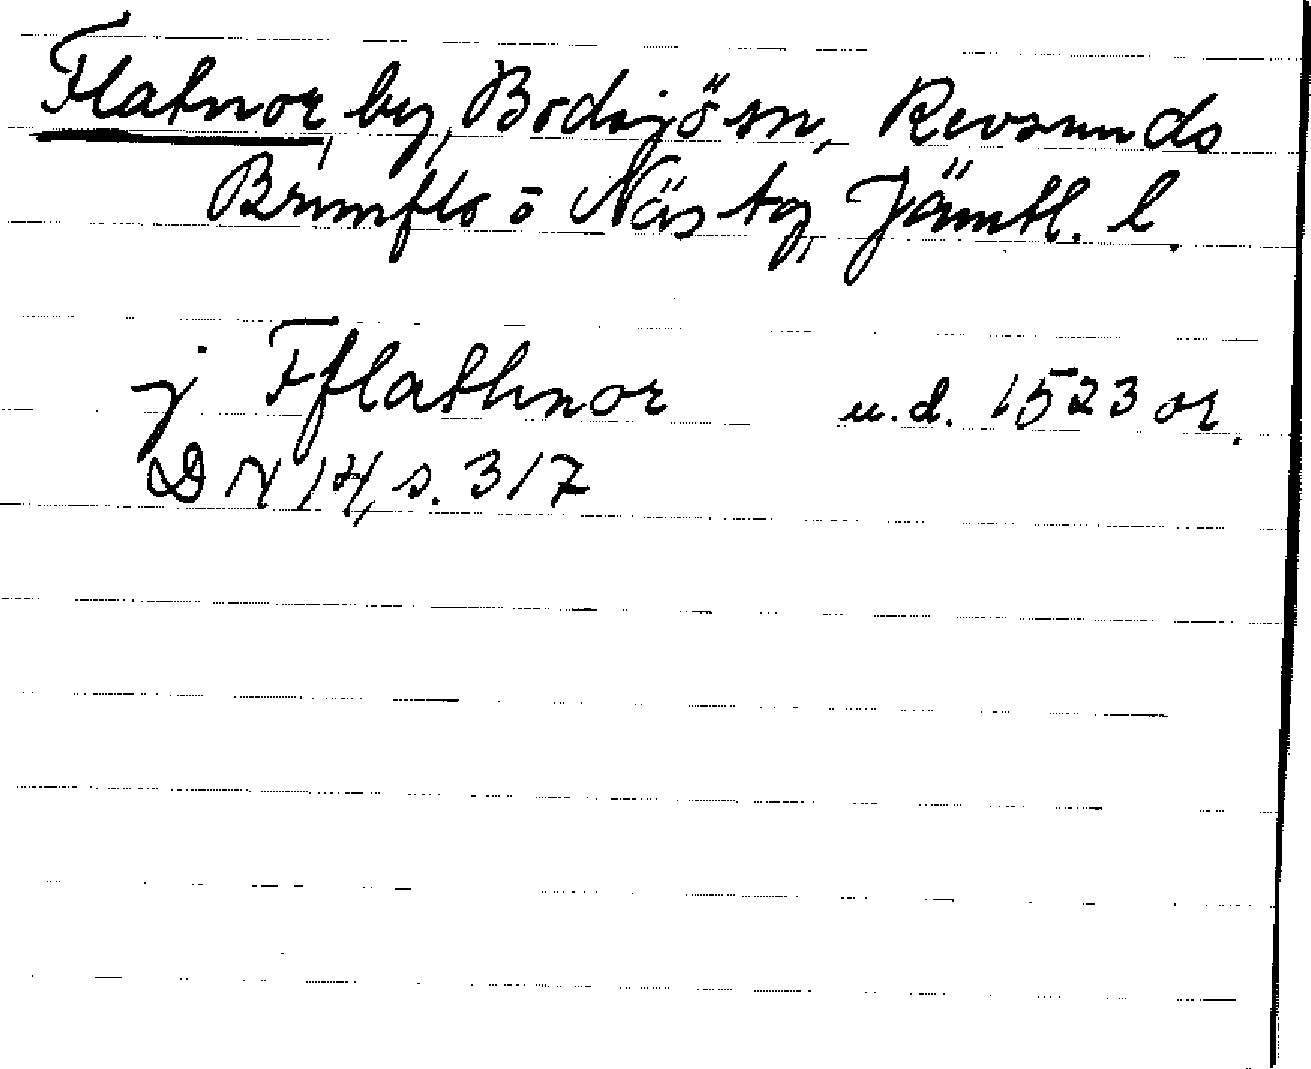 Flatnor, by, Bodsjö sn, Revsunds
Brunflo o Näs tg, Jämtl. l.
j Fflathnor u.d. 1523 or.
DN 14, s. 317